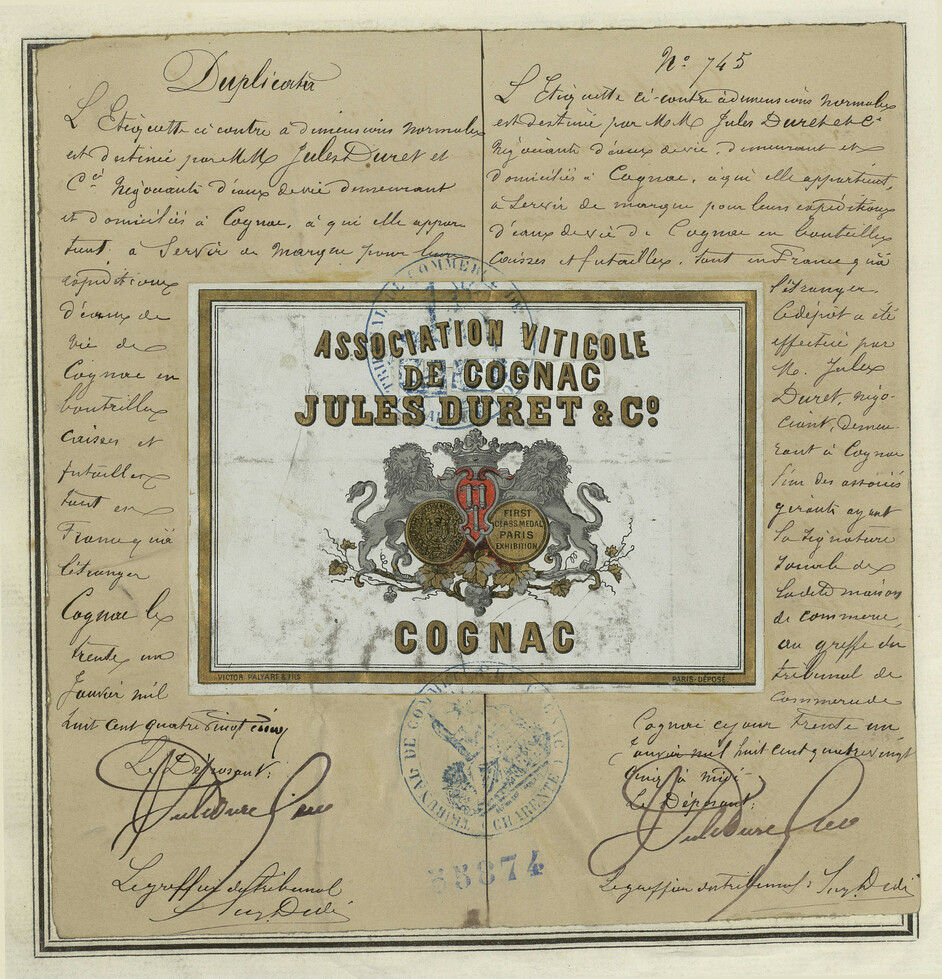 Duplicata
L'Etiquette ci contre à dimensions normales
est destinée par MM Jules Duret et
Cie Négociants d'eaux de vie demeurant
et domiciliés à Cognac, à qui elle appar
tient, à servir de marque pour leurs
expéditions
d'eaux de
vie de
Cognac en
bouteilles
caisses et
futailles
tant en
France qu'à
l'étranger
Cognac le
trente un
Janvier mil
huit cent quatre vingt cinq
Le Déposant:
Le greffier du tribunal
No 745
L'Etiquette ci-contre à dimensions normales
est destinée par MM Jules Duret et Cie
Négociants d'eaux de vie, demeurant et
domiciliés à Cognac, à qui elle appartient,
à servir de marque pour leurs expéditions
d'eaux de vie de Cognac en bouteilles
caisses et futailles, tant en France qu'à
l'étranger.
Le dépôt a été
effectué par
M. Jules
Duret négo-
ciant, demeu-
rant à Cognac
l'un des associés
gérants ayant
la signature
sociale de
ladite maison
de commerce,
au greffe du
tribunal de
commerce de
Cognac ce jour Trente un
Janvier mil huit cent quatre vingt
cinq à midi
Le Déposant:
Le greffier du tribunal:
ASSOCIATION VITICOLE
DE COGNAC
JULES DURET & Co.
FIRST
CLASS MEDAL
PARIS
EXHIBITION
COGNAC
VICTOR PALYART & FILS
PARIS-DÉPOSÉ
TRIBUNAL DE COMMERCE DE
TRIBUNAL DE COMMERCE DE COGNAC
CHARENTE
55874